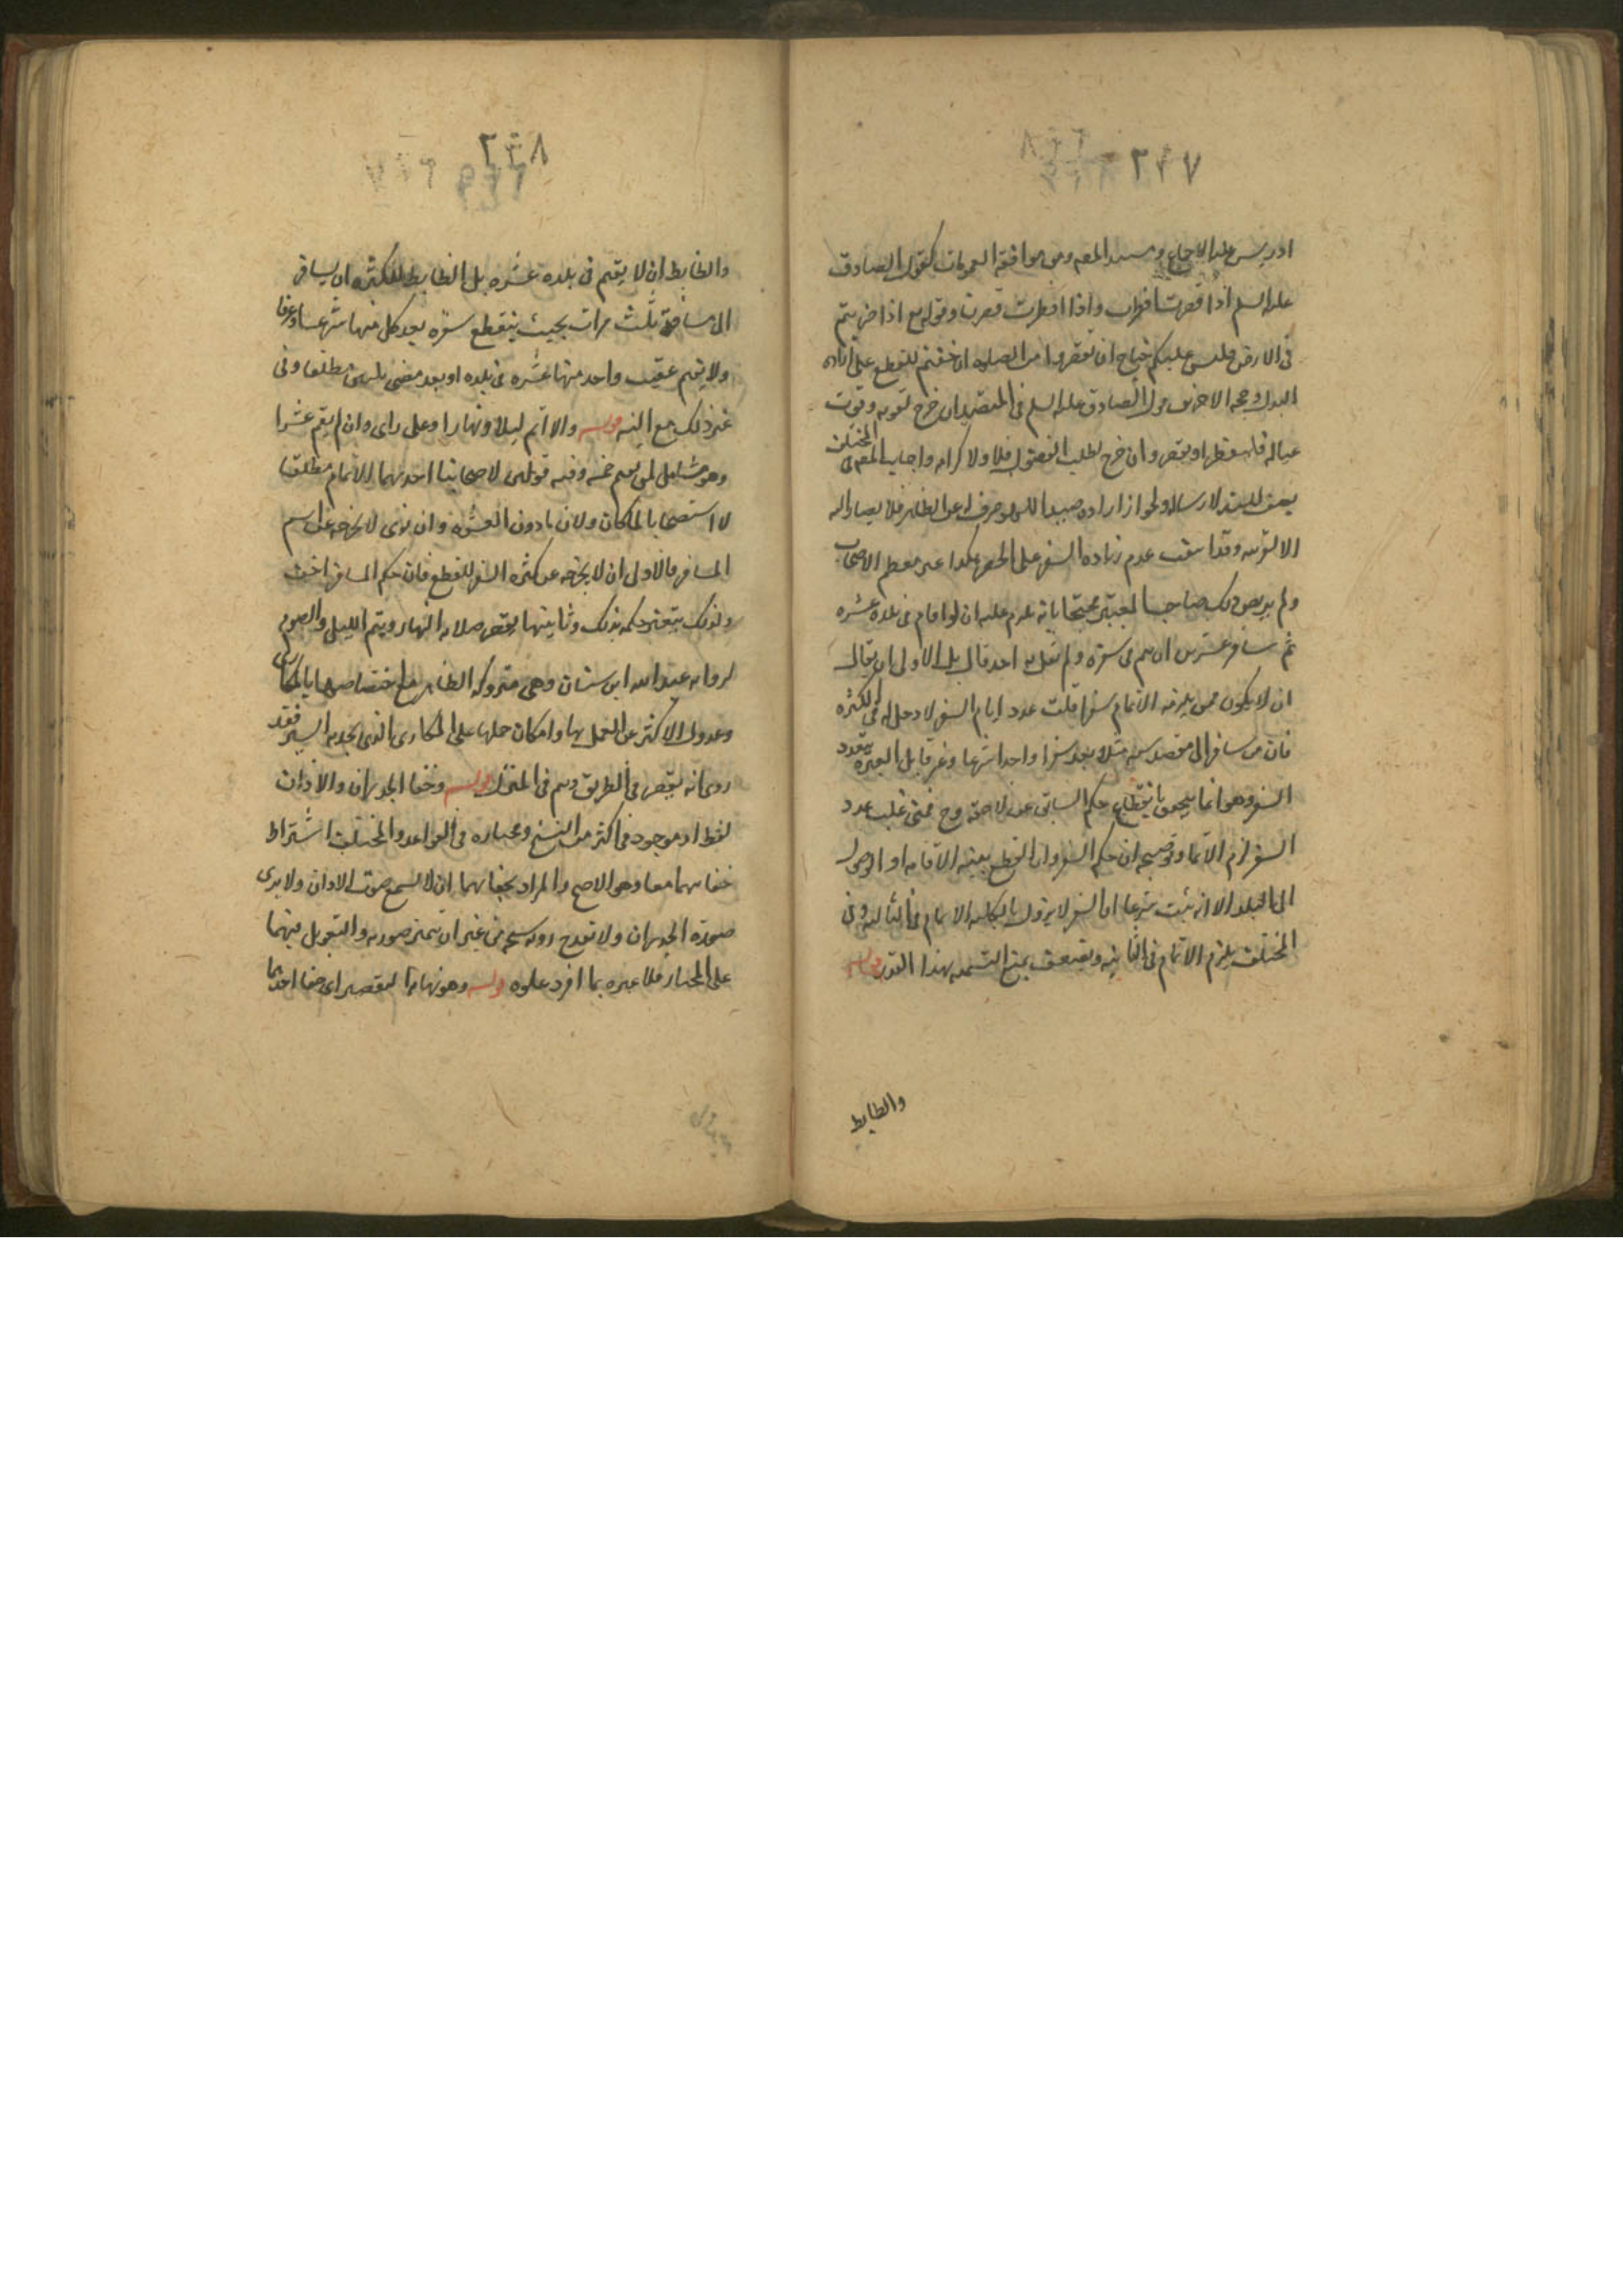 ٢٢٧
ادريس عليه الاجماع و المعه ومن موافقة العمومات كقول الصادق
عله السلم اذا قصرت افطرت واذا افطرت قصرت وقوله تع اذا ضربتم
فى الارض فليس عليكم جناح ان تقصروا من الصلوه ان خفتم للقطع على اراده
الصادق عله السلم فى المتصيد ان خرج لقوته وقوت
عياله فليفطر او يقصر وان خرج لطلب الفضول فلا ولا كرامه واجاب المصه فى المختلف
بضعف السند لارساله ولجواز اراده صيد اللهو عن الظاهر فلا يصار اليه
الا لقرينه وقد سبقت عدم زياده السفر على الحضر هكذا عبر معظم الاصحاب
ولم يرتض ذلك صاحب المعتبر محتجا بانه يلزم عليه ان لو اقام فى بلده عشره
ثم سافر عشرين ان يتم فى سفره ولم يقل به احد قال بل الاولى ان يقال
ان لا يكون ممن يلزمه الاتمام سفرا قلت عدد ايام السفر لا دخل له فى الكثره
فان من سافر الى مقصد سنه مثلا يعد سفرا واحدا شرعا وعرفا بل العبره بتعدد
السفر وهو انما يتحقق بانقطاع حكم السابق عن لاحقه وح فمتى غلب عدد
السفر لزم الاتمام وتوضيحه ان حكم السفر وان انقطع بنيه الاقامه او الوصول
الى البلد الا انه ثبت شرعا ان السفر لا يزول بالكليه الاتمام فى الثالثه وفى
المختلف يلزم الاتمام فى الثانيه ويضعف بمنع التسميه بهذا القدر قوله
والضابط
٢٢٨
والضابط ان لا يقيم فى بلده عشره بل الضابط للكثره ان يسافر
الى مسافة ثلث مرات بحيث ينقطع سفره بعد كل منها شرعا وعرفا
ولا يقيم عقيب واحد منها عشره فى بلده او بعد مضى ثلثين مطلقا وفى
غير ذلك مع النيه قوله والا اتم ليلا ونهارا وعلى راى وان لم يقم عشرا
وهو شامل لمن يقيم خمسه وفيه قولين لاصحابنا احدهما الاتمام مطلقا
لا استصحابا لما كان ولان ما دون العشره وان نوى لا يخرجه عن اسم
المسافر فالاولى ان لا يخرجه عن كثره السفر للقطع فان حكم المسافر اخف
ولذلك يتغير حكمه بذلك وثانيتها يقصر صلاه النهار ويتم الليل والصوم
لروايه عبد الله ابن سنان وهى متروكه الظاهر مع اختصاصها بالمكارى
وعدول الاكثر عن العمل بها وامكان حملها على المكارى الذى يجد به السير فقد
روى انه يقصر فى الطريق ويتم فى المنزل قوله وخفا الجدران والاذان
لفظ او موجود فى اكثر من النسخ ومختاره فى القواعد والمختلف اشتراط
خفائهما معا وهو الاصح والمراد بخفائهما ان لا يسمع صوت الاذان ولا يرى
صورة الجدران ولا تقدح رويه شبح من غير ان يتميز صورته والتعويل فيهما
على المختار فلا عبره بما افرط علوه قوله وهو نهايه التقصير اى خفا احدهما